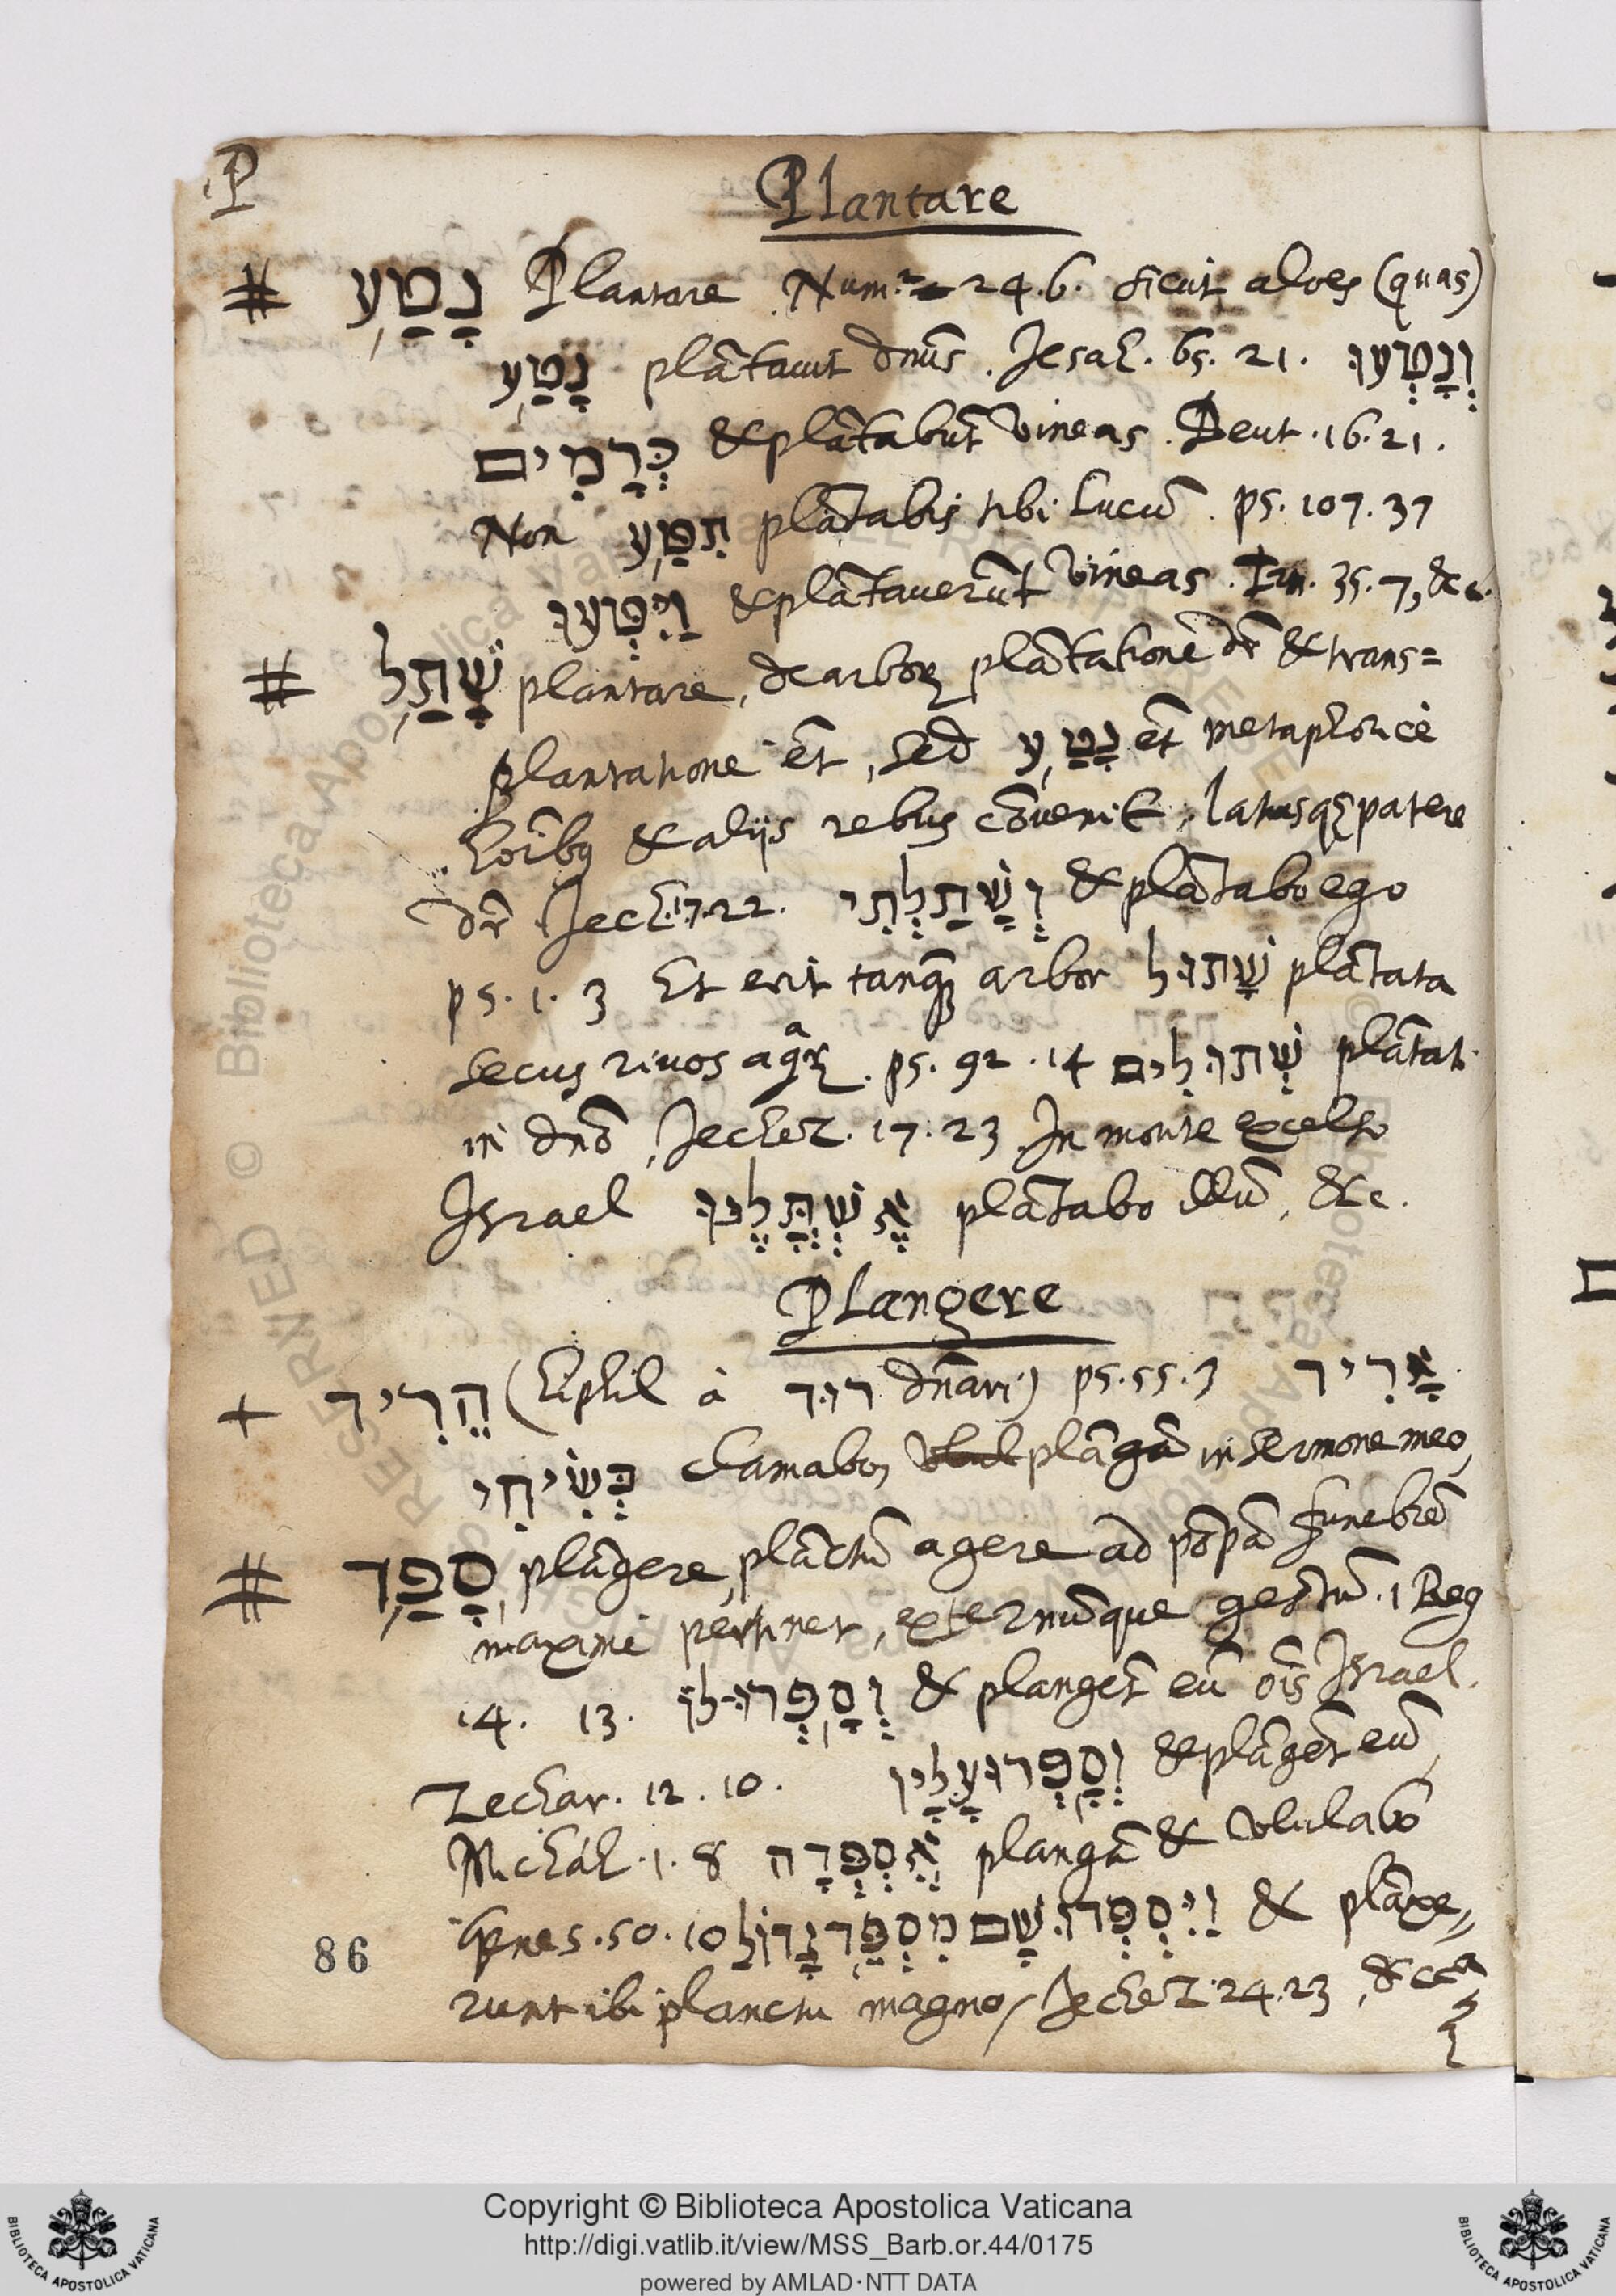 P
Plantare
# נָטַע Plantare Num. 24.6. sicut aloes (quas)
נָטַע plãtauit dnũs. Jesah. 65. 21. וְנָטְעוּ
כְּרָמִים & plãtabũt vineas. Deut. 16. 21.
Non תִטַּע plãtabis tibi Lucũ. ps. 107. 37
וַיִּטְּעוּ & plãtauerũt vineas. 35. 7, &c.
# שָׁתַל plantare, de arborũ plãtatione dr̃ & trans=
plantatione et̃, sed נָטַע et̃ metaphoricè
hoĩbꝫ & alijs rebus cõuenit, latiusqꝫ patere
dr̃ Jech. 17. 22. וְשָׁתַלְתִּי & plãtabo ego
ps. 1. 3 Et erit tanqꝫ arbor שָׁתוּל plãtata
secus riuos aqar̃. ps. 92. 14 שְׁתוּלִים plãtati
in dnõ, Jechez. 17. 23 In monte excelso
Israel אֶשְׁתֳּלֶנּוּ plãtabo illũ, &c.
Plangere
+ הֵרִיד (hiphil à רוּד dñari) ps. 55. 3 אָרִיד
בְּשִׂיחִי clamabo, plãgã in sermone meo,
# סָפַד plãgere, plãctũ agere ad põpã funebrẽ
maximè pertinet, externũque gestũ. 1 Reg
14. 13. וְסָפְדוּ־לוֹ & plangẽt eũ oĩs Israel.
Zechar. 12. 10. וְסָפְדוּ עָלָיו & plãgẽt eũ,
Michah. 1. 8 אֶסְפְּדָה plangã & vlulabo
Genes. 50. 10 וַיִּסְפְּדוּ שָׁם מִסְפֵּד גָּדוֹל & plãxe„
runt ibi planctu magno, Jechez. 24. 23, &c
86
Copyright © Biblioteca Apostolica Vaticana
http://digi.vatlib.it/view/MSS_Barb.or.44/0175
powered by AMLAD·NTT DATA
BIBLIOTECA APOSTOLICA VATICANA
BIBLIOTECA APOSTOLICA VATICANA